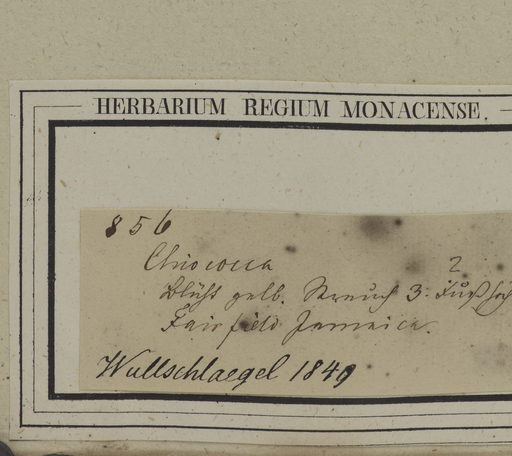 HERBARIUM REGIUM MONACENSE.
856
Chiococca 2
Blüht gelb. Strauch 3. Fuß hoch
Fairfield Jamaica.
Wullschlaegel 1849